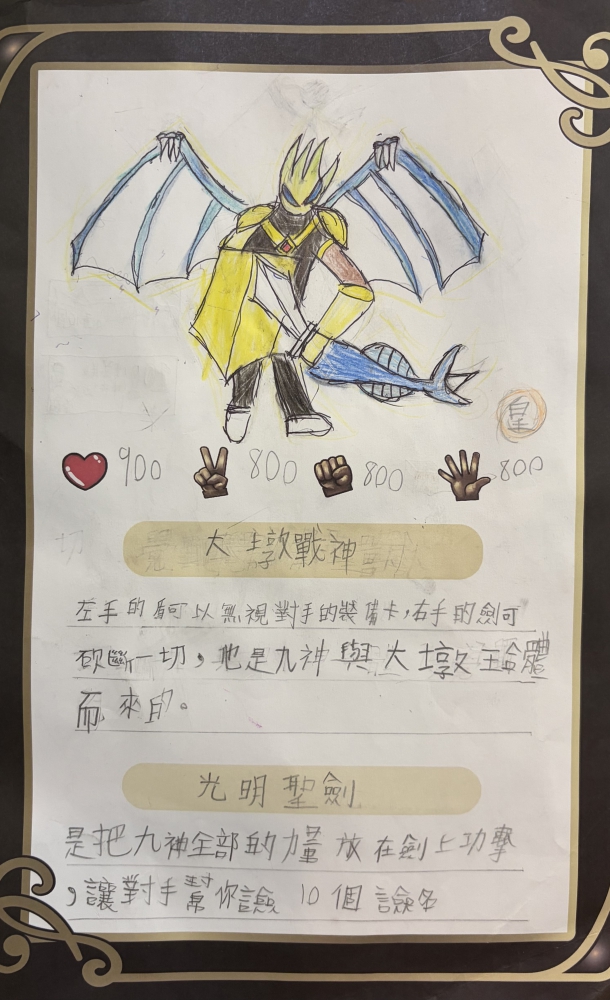 皇
900 800 800 800
大墩戰神
左手的盾可以無視對手的裝備卡,右手的劍可
砍斷一切,他是九神與大墩王合體
而來的。
光明聖劍
是把九神全部的力量放在劍上功擊
,讓對手幫你
10個